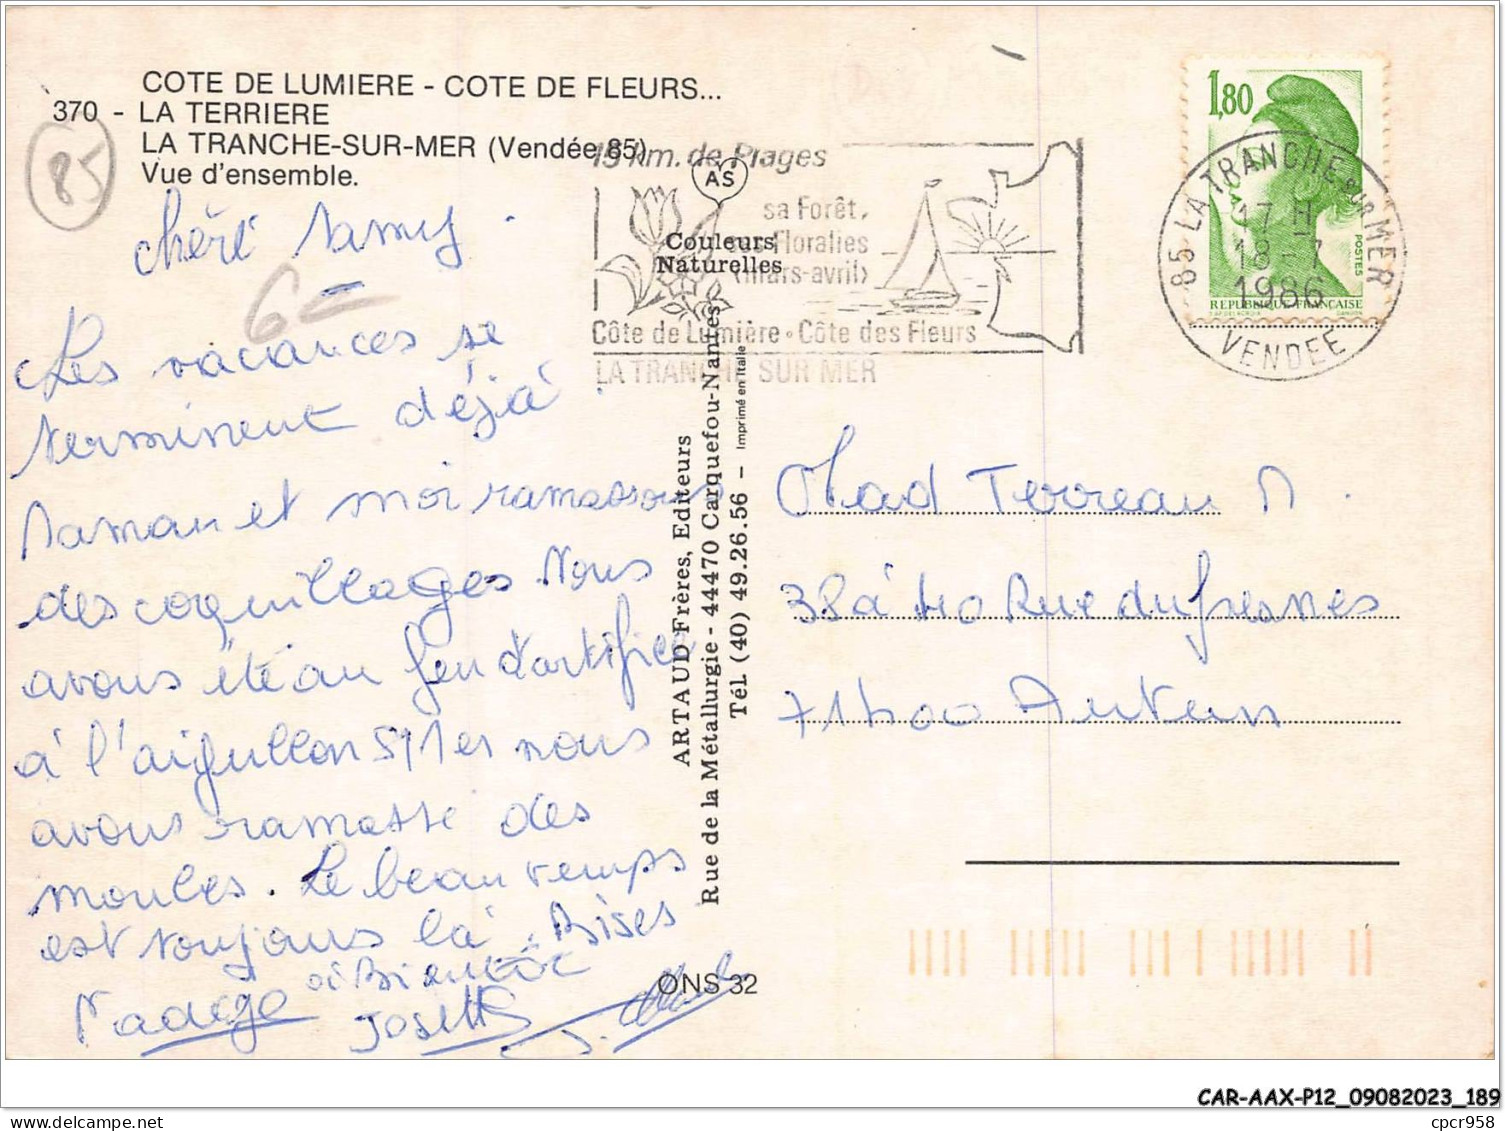 COTE DE LUMIERE - COTE DE FLEURS...
370 - LA TERRIERE
LA TRANCHE-SUR-MER (Vendée 85)
Vue d'ensemble.
85
6 =
15 km. de Plages
sa Forêt,
ses Floralies
(mars-avril)
Côte de Lumière • Côte des Fleurs
LA TRANCHE SUR MER
AS
Couleurs
Naturelles
1,80
POSTES
REPUBLIQUE FRANCAISE
85 LA TRANCHE SUR MER
17 H
18 - 7
1986
VENDEE
Chéri
Les vacances se
terminent déjà !
Maman et moi ramassons
des coquillages. Nous
avons été au feu d'artifice
à l'aiguillon S/Mer nous
avons ramassé des
moules. Le beau temps
est toujours là. Bises
à Bientôt
Nadège Josette
ARTAUD Frères, Editeurs
Rue de la Métallurgie - 44470 Carquefou-Nantes
Tél. (40) 49.26.56 - Imprimé en Italie
ONS 32
Mad Terreau N.
38 à 40 Rue du fresnes
71400 Autun
CAR-AAX-P12_09082023_189
cpcr958